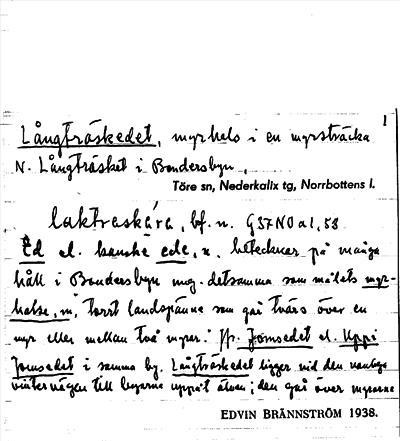 1
Långträskedet, myrhals i en myrsträcka
N. Långträsket i Bondersbyn.
Töre sn, Nederkalix tg, Norrbottens l.
laktraskära, bf. n. G37N0a1,53
Ed el. kanske ede, n. betecknar på många
håll i Bondersbyn mg. detsamma som målets myr-
halse, m, torrt landspänne som går tvärs över en
myr eller mellan två myrar. Jfr. Jomsedet el. Uppi
Jomsedet i samma by. Långträskedet ligger vid den vanliga
vintervägen till byarna uppåt älven; den går över myrarna
EDVIN BRÄNNSTRÖM 1938.